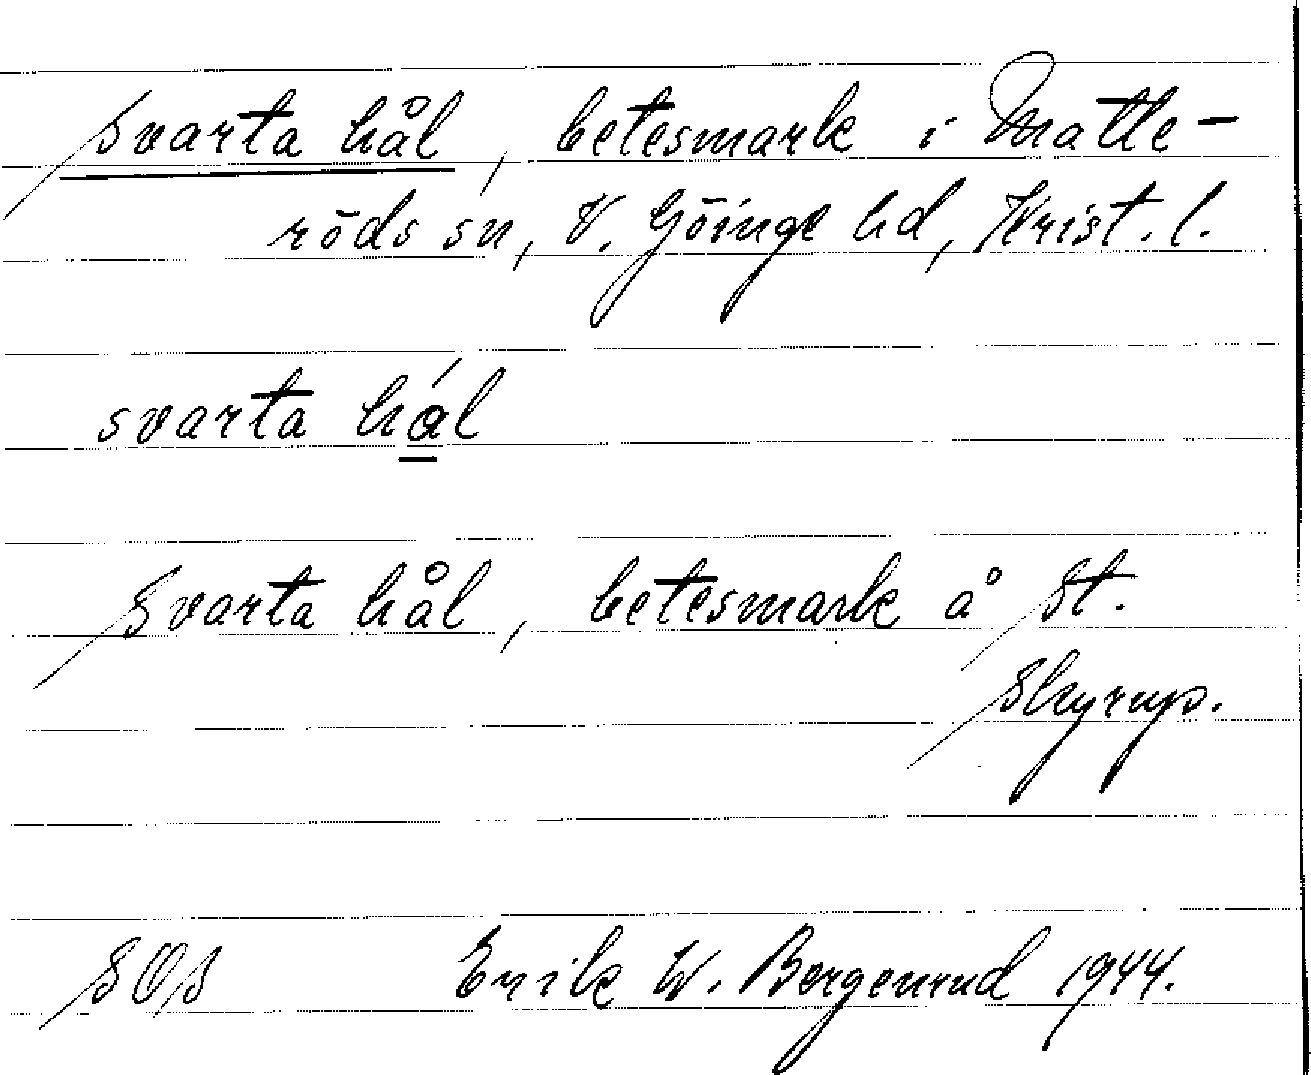 Svarta hål, betesmark i Matte-
röds sn, V. Göinge hd, Krist. l.
svarta hál
Svarta hål, betesmark å St.
Skyrup.
SOS Erik W. Bergenrud 1944.